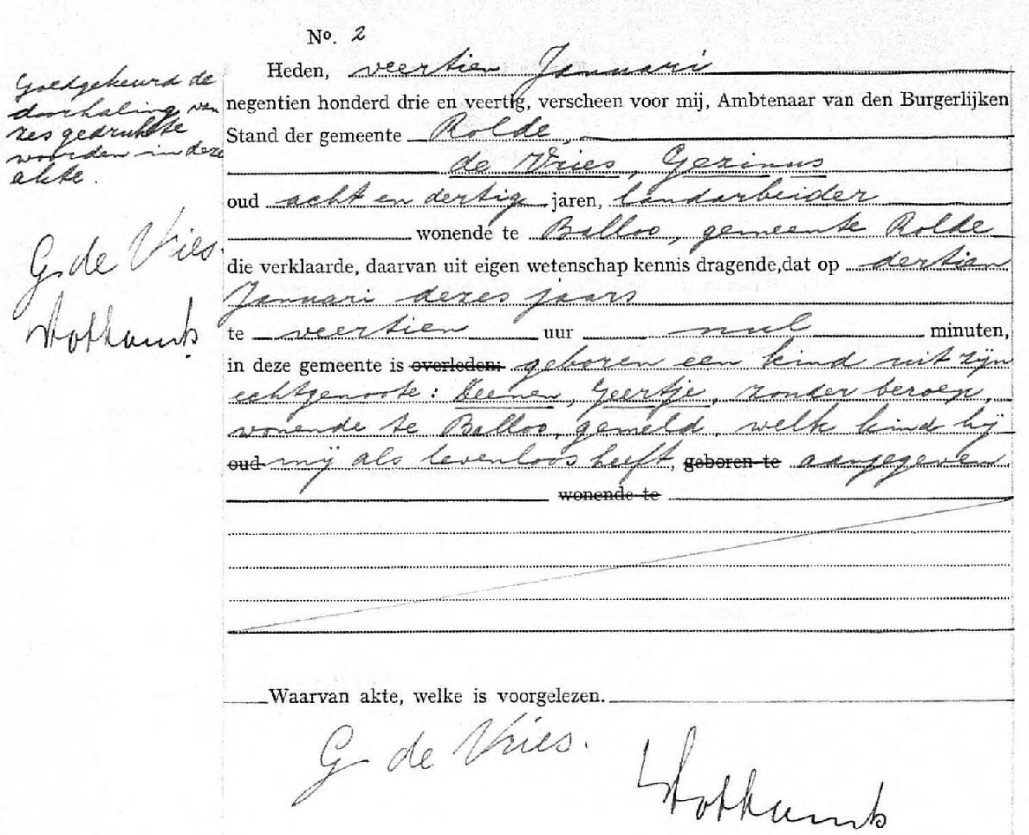 No. 2
Heden, veertien Januari
negentien honderd drie en veertig, verscheen voor mij, Ambtenaar van den Burgerlijken
Stand der gemeente Rolde
de Vries, Gezinus
oud acht en dertig jaren, landarbeider
wonende te Balloo, gemeente Rolde
die verklaarde, daarvan uit eigen wetenschap kennis dragende, dat op dertien
Januari dezes jaars
te veertien uur nul minuten,
in deze gemeente is overleden: geboren een kind uit zijn
echtgenoote: Deenen, Geertje, zonder beroep,
wonende te Balloo, gemeld, welk kind hij
oud mij als levenloos heeft, geboren te aangegeven
wonende te
Waarvan akte, welke is voorgelezen.
G de Vries.
Goedgekeurd de
doorhaling van
zes gedrukte
woorden in deze
akte.
G. de Vries.